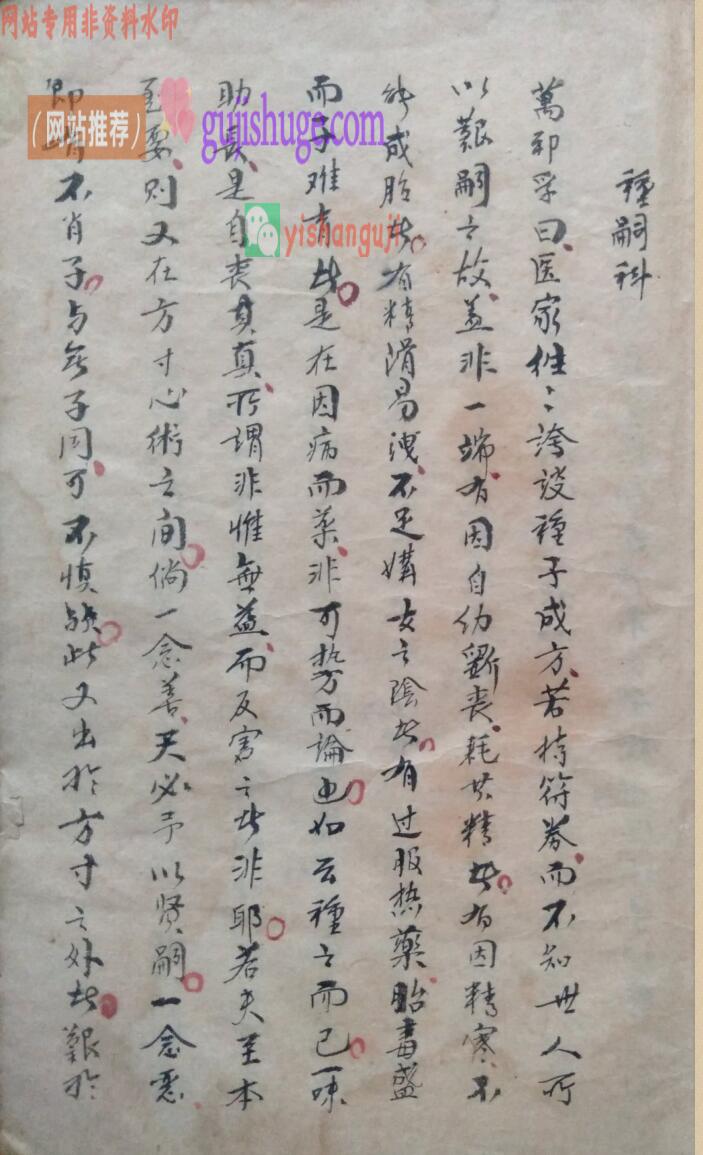 网站专用非资料水印
(网站推荐)
gujishuge.com
yishanguji
種嗣科
萬邦孚曰医家徃〻誇設種子成方若持符券而不知世人所
以艱嗣之故盖非一端有因自幼斲丧耗其精者有因精寒不
能成胎者有精滑易洩不足媾女之陰者有过服热藥胎毒盛
而子难育者是在因病而药非可执方而論也如云種之而已一味
助長是自丧其真所謂非惟無益而反害之者非耶若夫至本
至要则又在方寸心術之间倘一念善天必予以贤嗣一念恶
即不肖子与无子同可不慎欤此又出於方寸之外者艱於